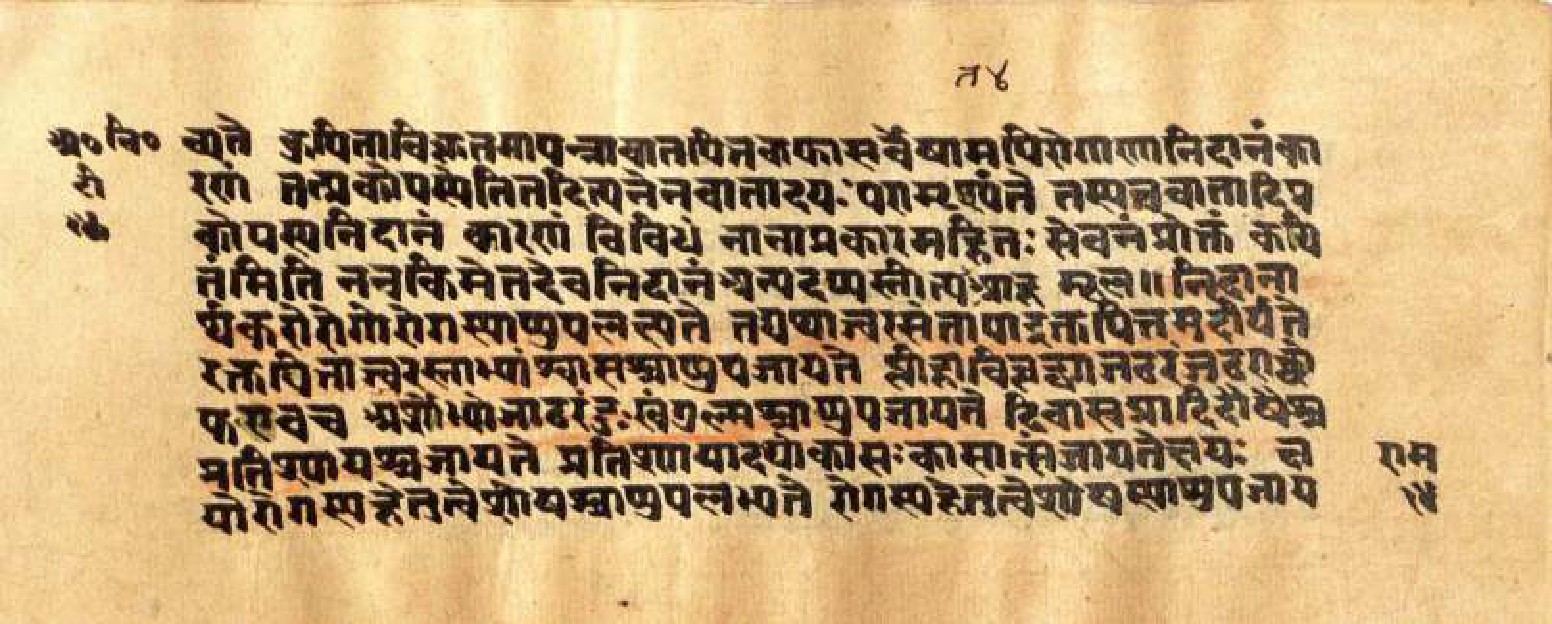 त४
अ० चि० च्यते कुपिताविकृतमापन्नावातपित्तकफासर्वेषामपिरोगाणानिदानंका
रो रणं तत्प्रकोपस्येतितदित्यनेनवातादयः तस्यचवातादिप्र
१४ कोपस्यनिदानं कारणं विविधं नानाप्रकारमहितः सेवनंप्रोक्तं कथि
तंमिति ननुकिमेतदेवनिदानं मूल॥ निदाना
र्थकरोरोगोरोगस्याप्युपलभ्यते तद्यथाज्वरसंतापाद्रक्तपित्तमुदीर्यते
रक्तपित्ताज्वरस्ताभ्यां श्वासश्चाप्युपजायते प्लीहाविवृद्ध्याजठरंजठराछो
फएवच अर्शोभ्योजाठरंदुःखंगुल्मश्चाप्युपजायते दिवास्वप्नादिदोषैश्च
प्रतिश्यायश्चजायते प्रतिश्यायादथोकासःकासात्संजायतेक्षयः क्ष राम
योरोगस्यहेतुत्वेशोषश्चाप्युपलभ्यते रोगस्यहेतुत्वेशोषस्याप्युपजाय १४